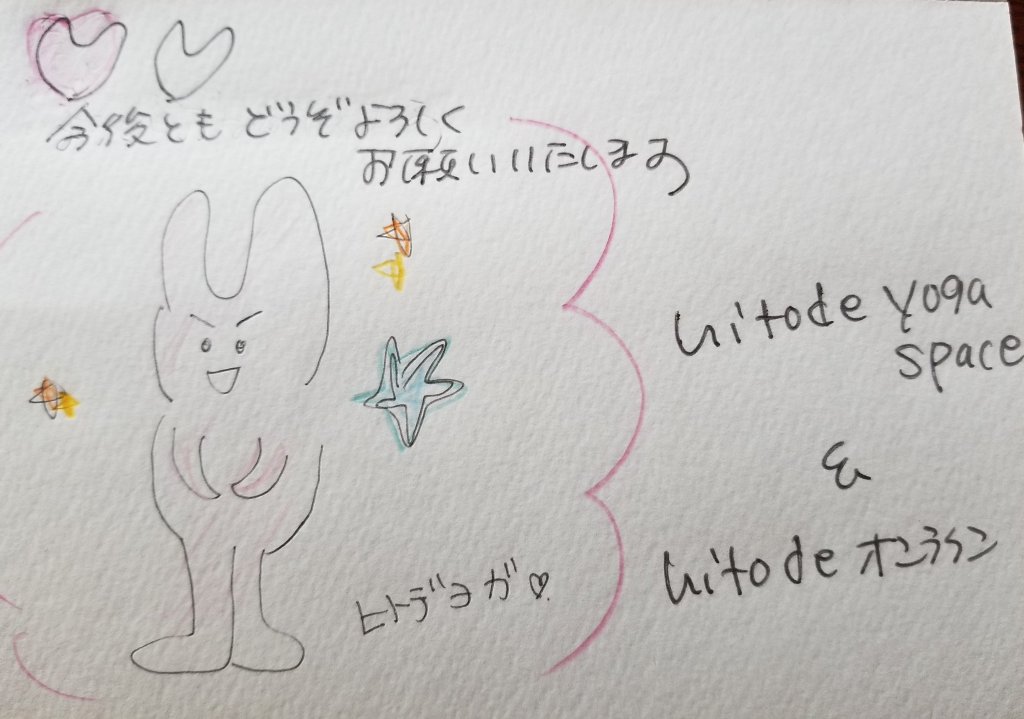 今後ともどうぞよろしく
お願いいたします
hitode yoga
space
&
hitode オンライン
ヒトデヨガ♡